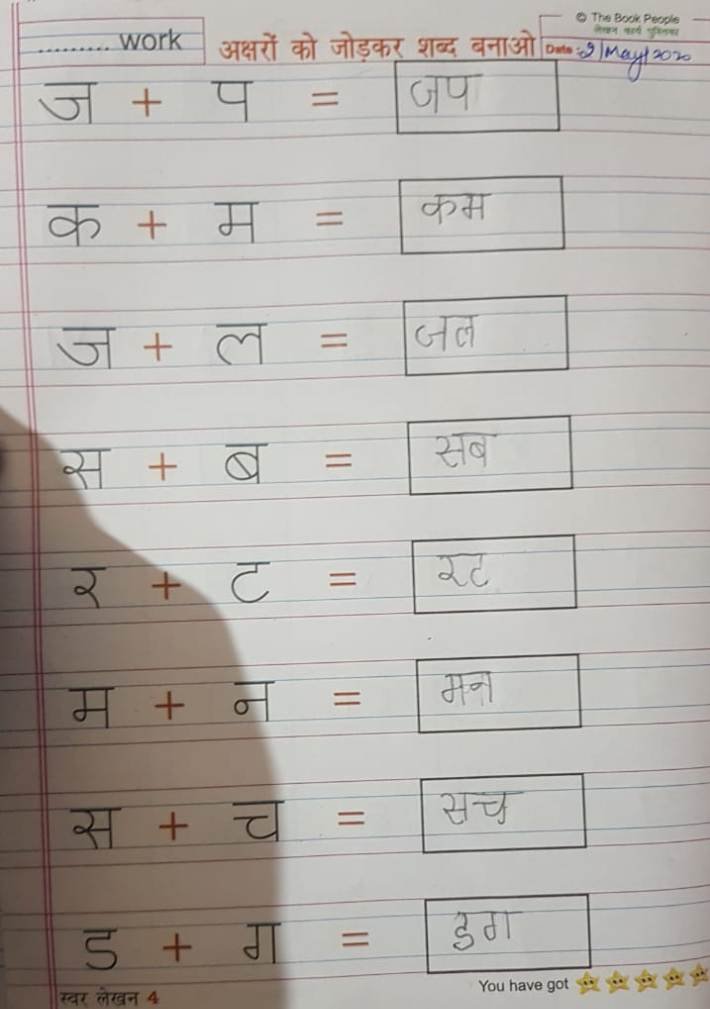 © The Book People
लेखन कार्य पुस्तिका
.......... work
अक्षरों को जोड़कर शब्द बनाओ
Date: 2/May/2020
ज + प = जप
क + म = कम
ज + ल = जल
स + ब = सब
र + ट = रट
म + न = मन
स + च = सच
ड + ग = डग
You have got
स्वर लेखन 4